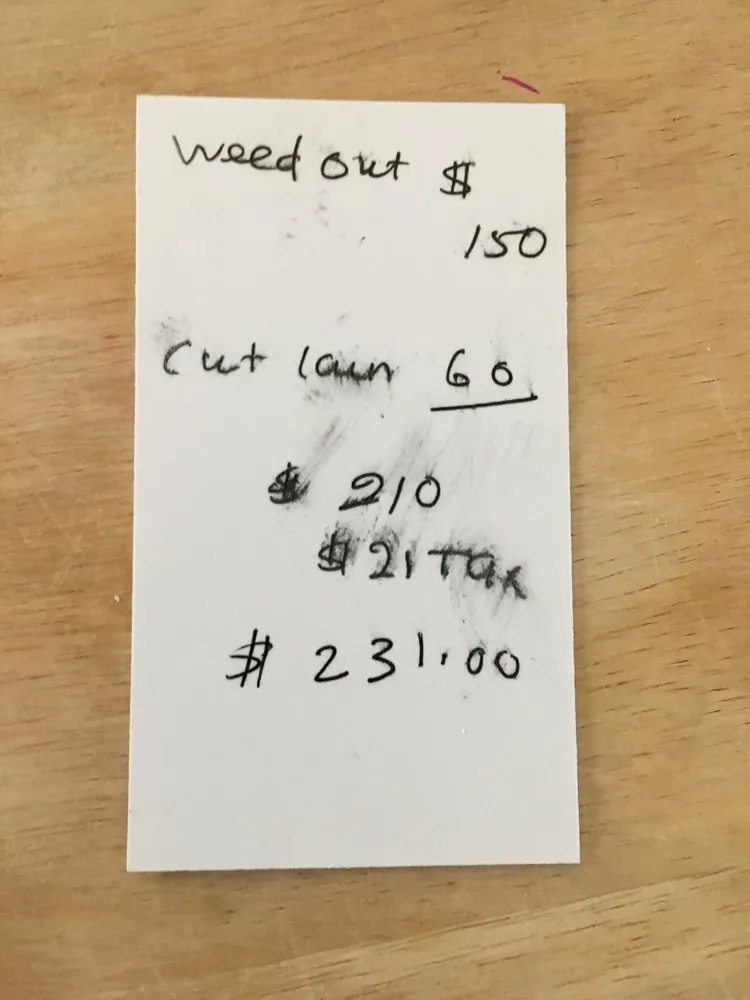 Weed out $
150
Cut laun 60
$ 210
$ 21 Tax
$ 231.00